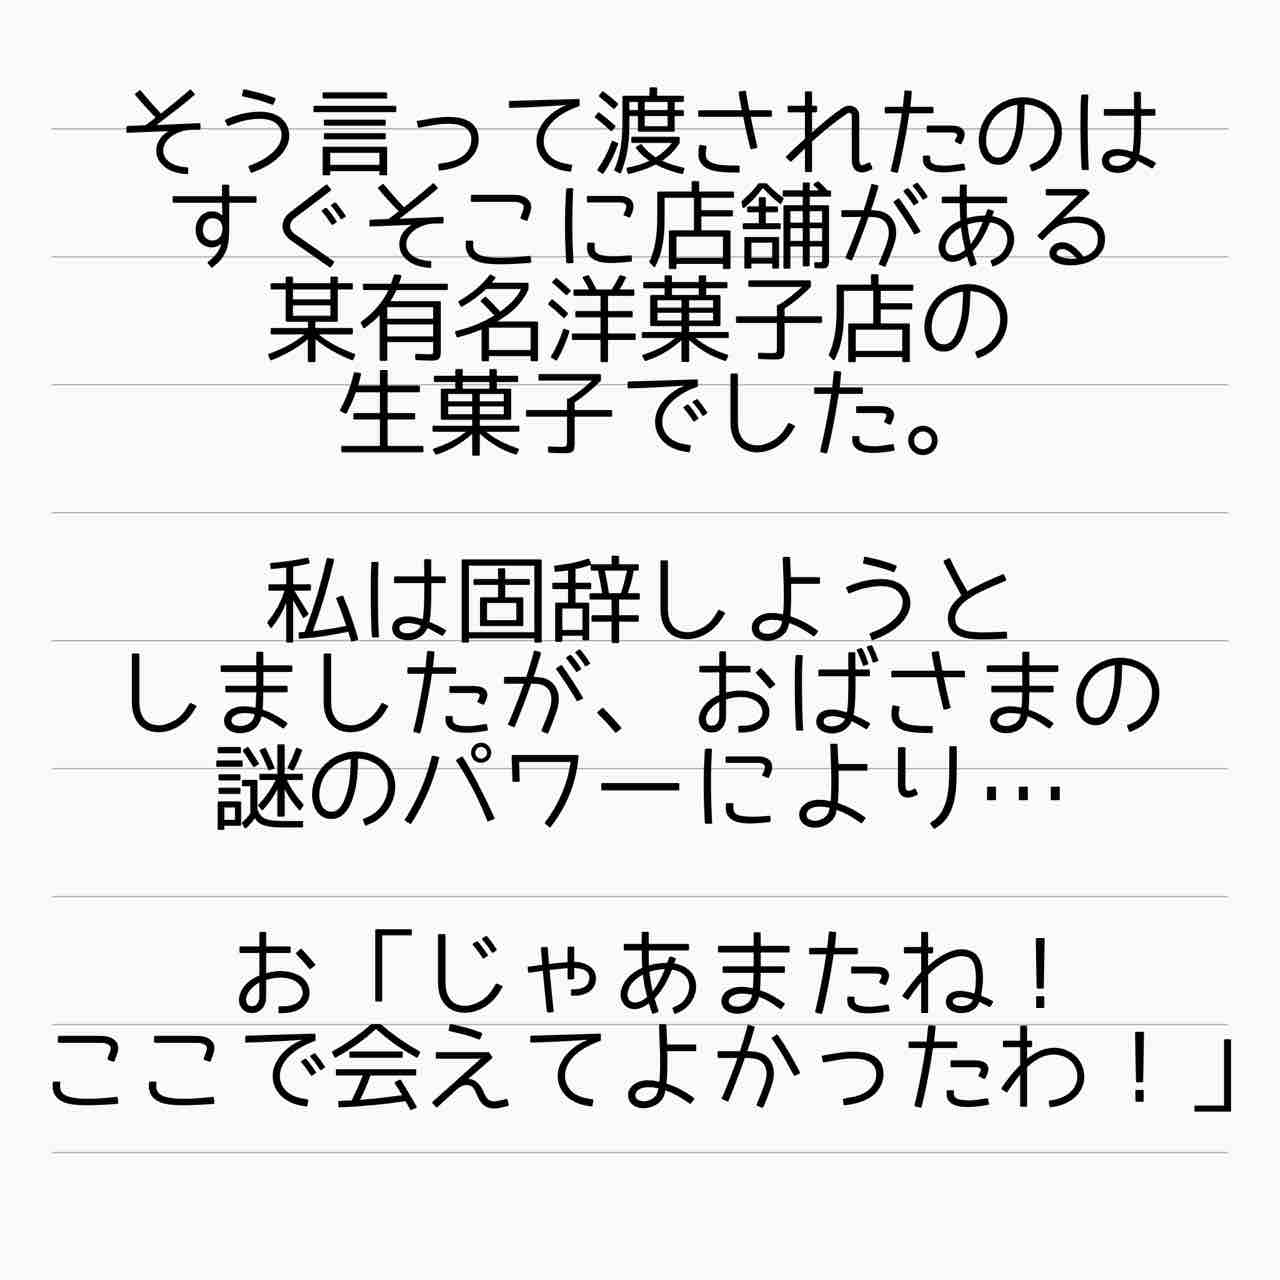 そう言って渡されたのは
すぐそこに店舗がある
某有名洋菓子店の
生菓子でした。
私は固辞しようと
しましたが、おばさまの
謎のパワーにより…
お「じゃあまたね！
ここで会えてよかったわ！」